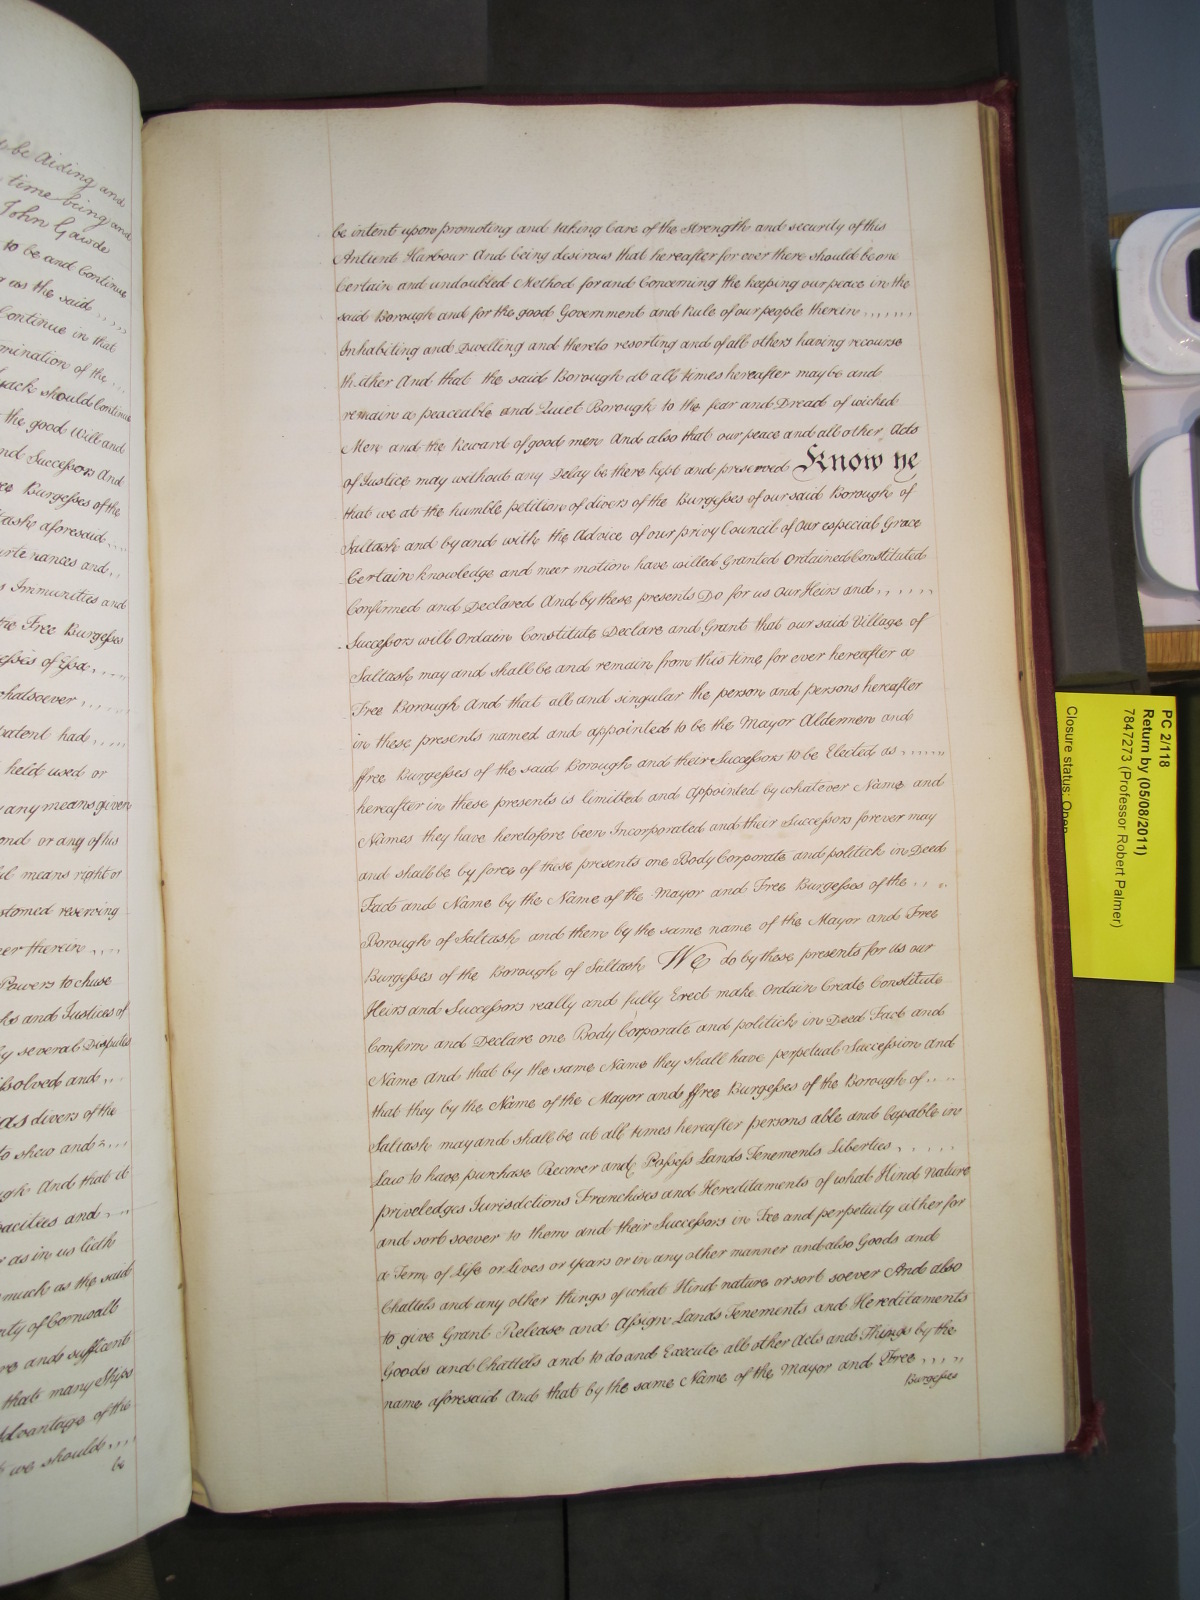 to be Aiding and
time being and
John Gawde
to be and Continue
as the said .....
Continue in that
mination of the ...
should Continue
the good Will and
nd Successors And
ee Burgesses of the
tash aforesaid ....
urtenances and ..
s Immunities and
the Free Burgesses
esses of Esa ....
whatsoever .....
patent had ....
held used or
any means given
ond or any of his
ful means right or
stomed reserving
er therein ....
Powers to chuse
ks and Justices of
by several Disputes
issolved and ...
as divers of the
to shew and ....
ugh And that it
pacities and ...
r as in us lieth
much as the said
nty of Cornwall
re and sufficient
that many Ships
Advantage of the
we should ....
be
be intent upon promoting and taking Care of the strength and security of this
Antient Harbour And being desirous that hereafter for ever there should be one
Certain and undoubted Method for and Concerning the keeping our peace in the
said Borough and for the good Government and Rule of our people therein ......
Inhabiting and Dwelling and thereto resorting and of all others having recourse
thither And that the said Borough at all times hereafter may be and
remain a peaceable and Quiet Borough to the fear and Dread of wicked
Men and the Reward of good men And also that our peace and all other Acts
of Justice may without any Delay be there kept and preserved Know ye
that we at the humble petition of divers of the Burgesses of our said Borough of
Saltash and by and with the Advice of our privy Council of Our especial Grace
Certain knowledge and meer motion have willed Granted Ordained Constituted
Confirmed and Declared And by these presents Do for us Our Heirs and ......
Successors will Ordain Constitute Declare and Grant that our said Village of
Saltash may and shall be and remain from this time for ever hereafter a
Free Borough And that all and singular the person and persons hereafter
in these presents named and appointed to be the Mayor Aldermen and
ffree Burgesses of the said Borough and their Successors to be Elected as ......
hereafter in these presents is limitted and appointed by whatever Name and
Names they have heretofore been Incorporated and their Successors forever may
and shall be by force of these presents one Body Corporate and politick in Deed
Fact and Name by the Name of the Mayor and Free Burgesses of the ...
Borough of Saltash and them by the same name of the Mayor and Free
Burgesses of the Borough of Saltash We do by these presents for us our
Heirs and Successors really and fully Erect make Ordain Create Constitute
Confirm and Declare one Body Corporate and politick in Deed Fact and
Name And that by the same Name they shall have perpetual Succession and
that they by the Name of the Mayor and ffree Burgesses of the Borough of ....
Saltash may and shall be at all times hereafter persons able and Capable in
Law to have purchase Recover and Possess Lands Tenements Liberties .....
priveledges Jurisdictions Franchises and Hereditaments of what Kind nature
and sort soever to them and their Successors in Fee and perpetuity either for
a Term of Life or Lives or years or in any other manner and also Goods and
Chattels and any other things of what Kind nature or sort soever And also
to give Grant Release and Assign Lands Tenements and Hereditaments
Goods and Chattels and to do and Execute all other Acts and Things by the
name aforesaid And that by the same Name of the Mayor and Free ....
Burgesses
PC 2/118
Return by (05/08/2011)
7847273 (Professor Robert Palmer)
Closure status: Open